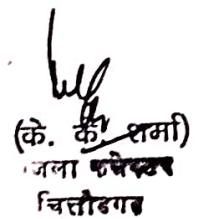 (के. के. शर्मा)
जिला कलेक्टर
चित्तौडगढ